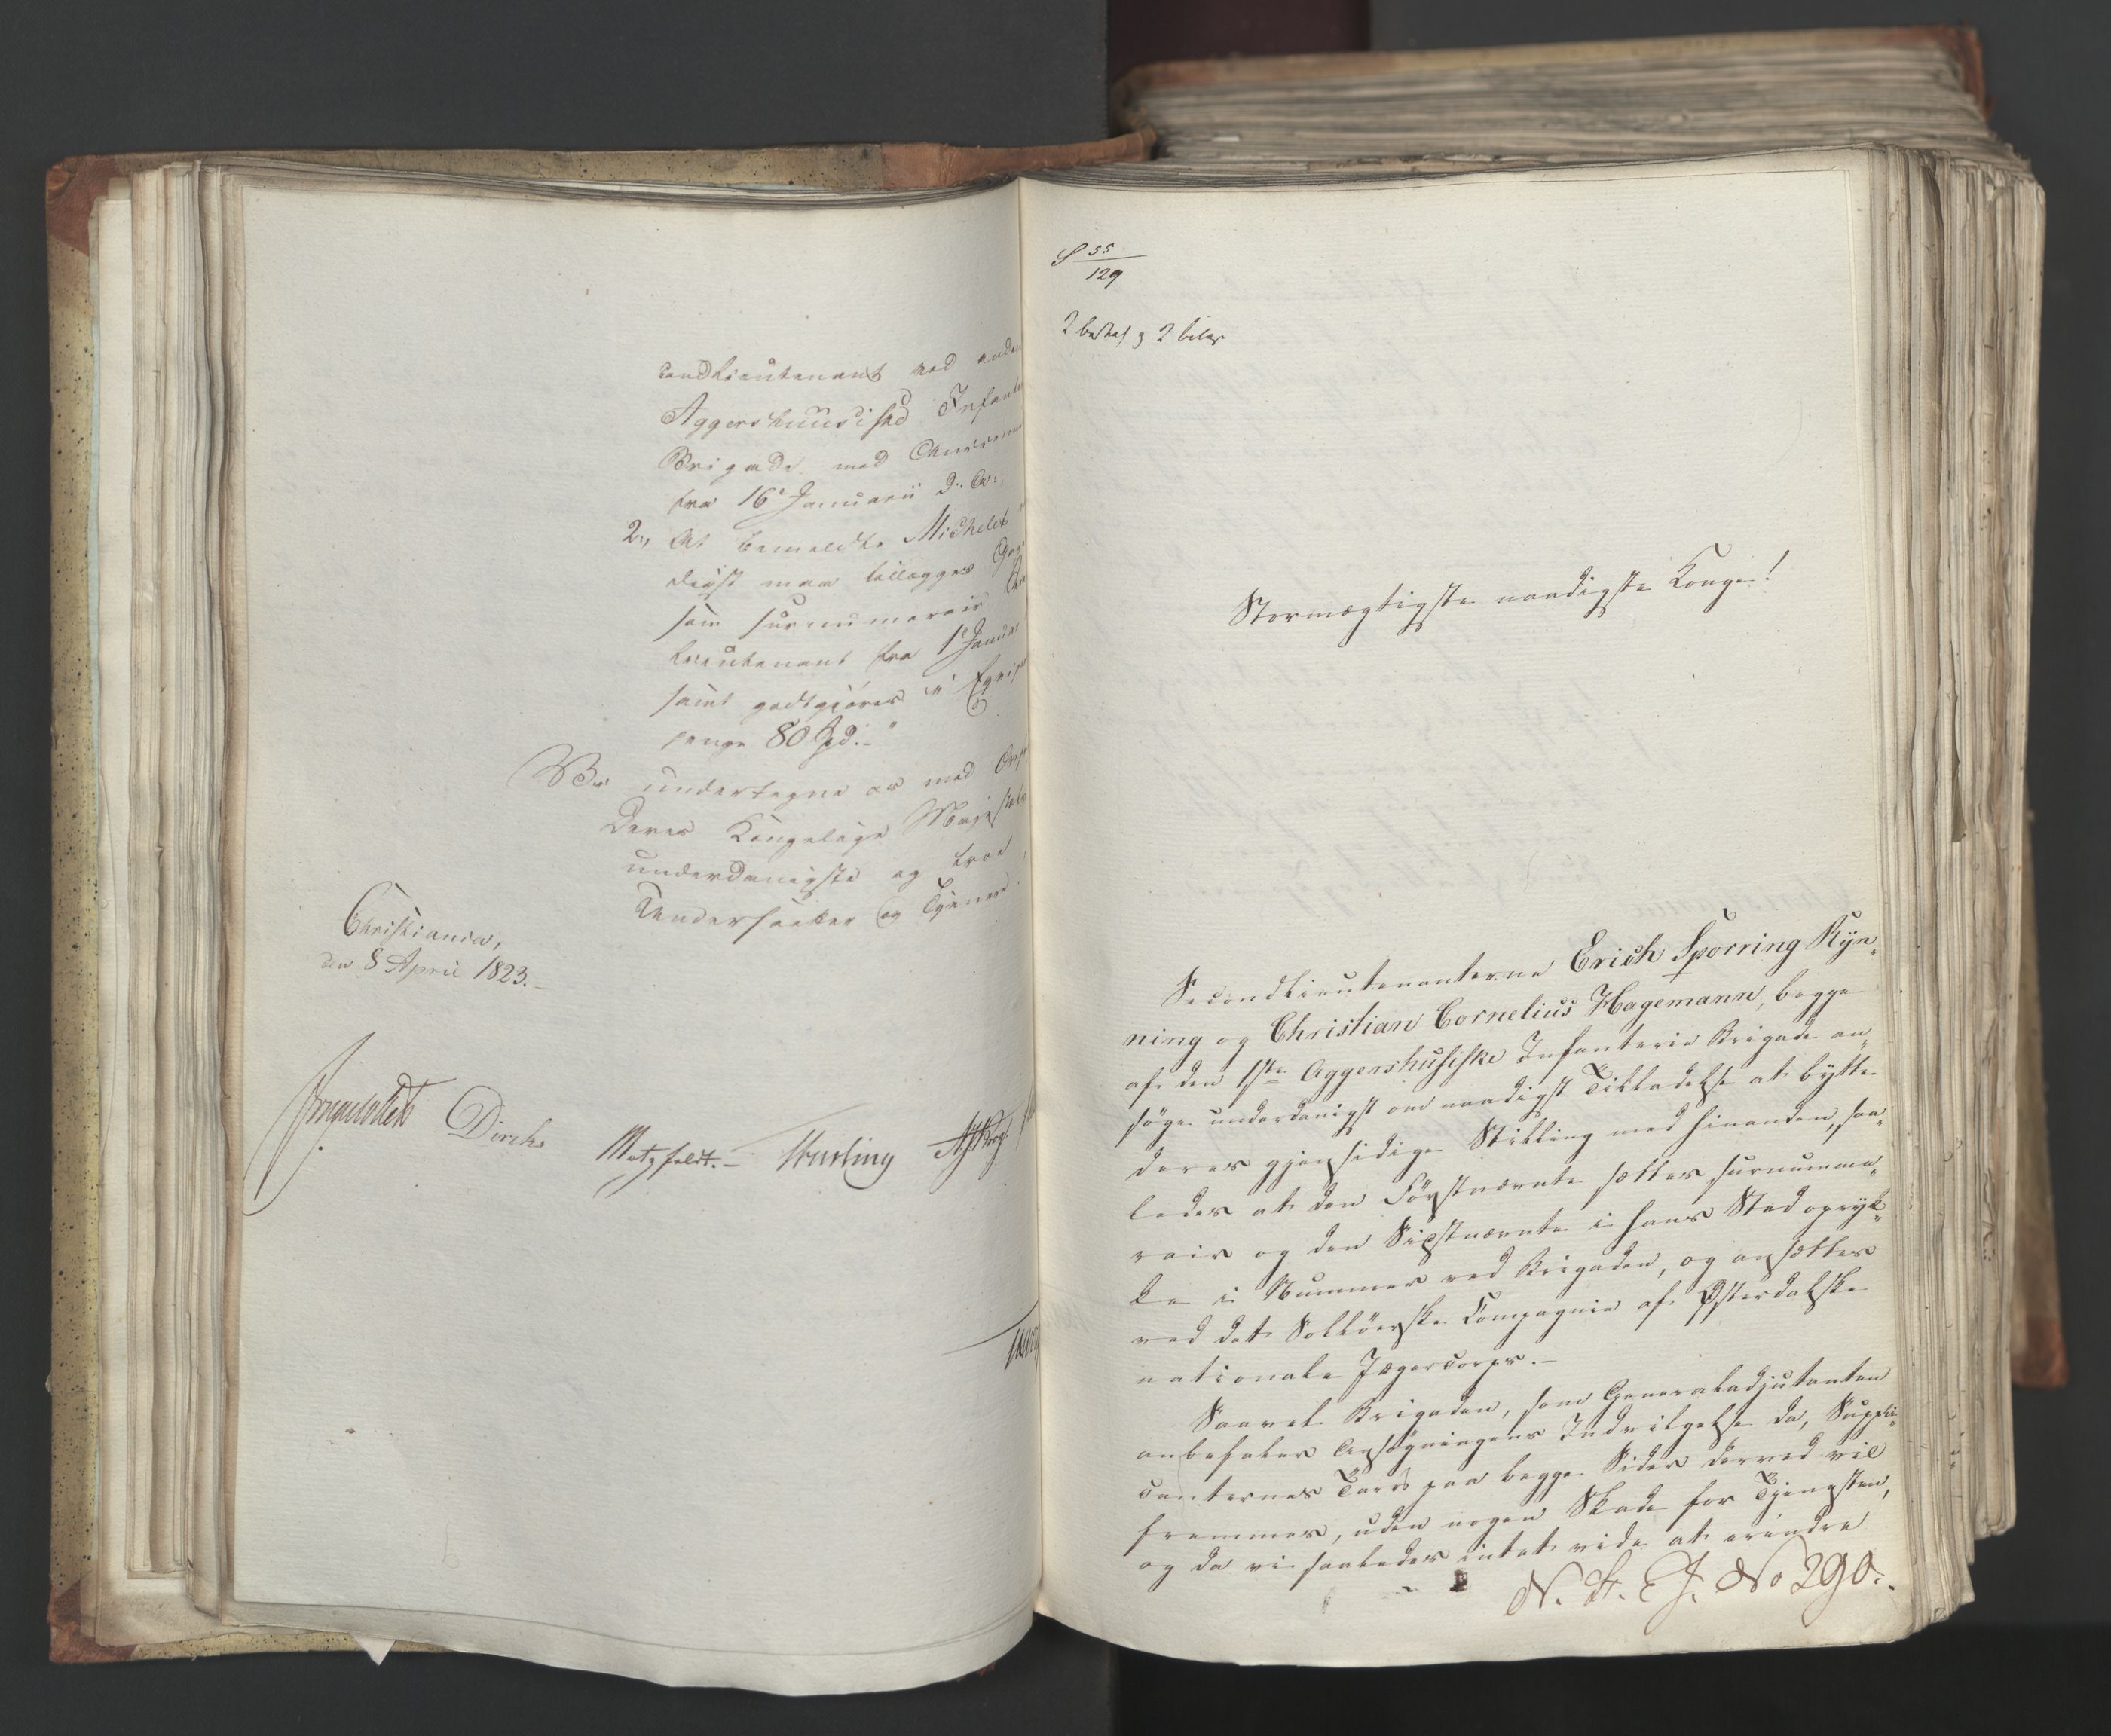 condLieutenant ved anden
Aggershuusiske Infanterie
Brigade med Anciennet
fra 16de Januarii d: A:
2:, At bemeldte Michelet
digst maa tillægges Gage
som surnumerair
Lieutenant fra 1ste Januar
samt godtgjøres i Eqvipe
penge 80 Spd:-"
Vi undertegne os med
Deres Kongelige Majestæts
underdanigste og troe
Undersaatter og Tjenere
Christiania,
den 8 April 1823.-
Diriks
Motzfeldt.-
S 55
129
2 Besked og 2 bilag
Stormægtigste naadigste Konge!
SecondLieutenanterne Erich Sporring Ryn„
ning og Christian Cornelius Hagemann, begge
af den 1ste Aggershusiske Infanterie Brigade an„
søge underdanigst om naadigst Tilladelse at bytte
deres gjensidige Stilling med hinanden, saa„
ledes at den Førstnævnte sættes surnumme„
rair og den Sidstnævnte i hans Sted opryk„
ke i Nummer ved Brigaden, og ansættes
ved det Solløerske Compagnie af Østerdalske
nationale Jægercorps.-
Saavel Brigaden, som Generaladjutanten
anbefaler Ansøgningens Indvilgelse da, Suppli„
canternes Tarv paa begge Sider derved vil
fremmes, uden nogen Skade for Tjenesten,
og da vi saaledes intet vide at erindre
N. St. E. J. No 290.